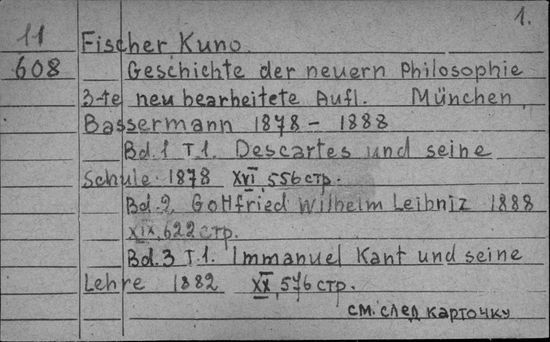 1.
11
Fischer Kuno.
608
Geschichte der neuern Philosophie
3-te neu bearbeitete Aufl. München,
Bassermann 1878 - 1888
Bd.1 T.1. Descartes und seine
Schule. 1878 XVI, 556 стр.
Bd.2. Gottfried Wilhelm Leibniz 1888
XIX, 622 стр.
Bd.3 T.1. Immanuel Kant und seine
Lehre 1882 XX, 576 стр.
см. след карточку